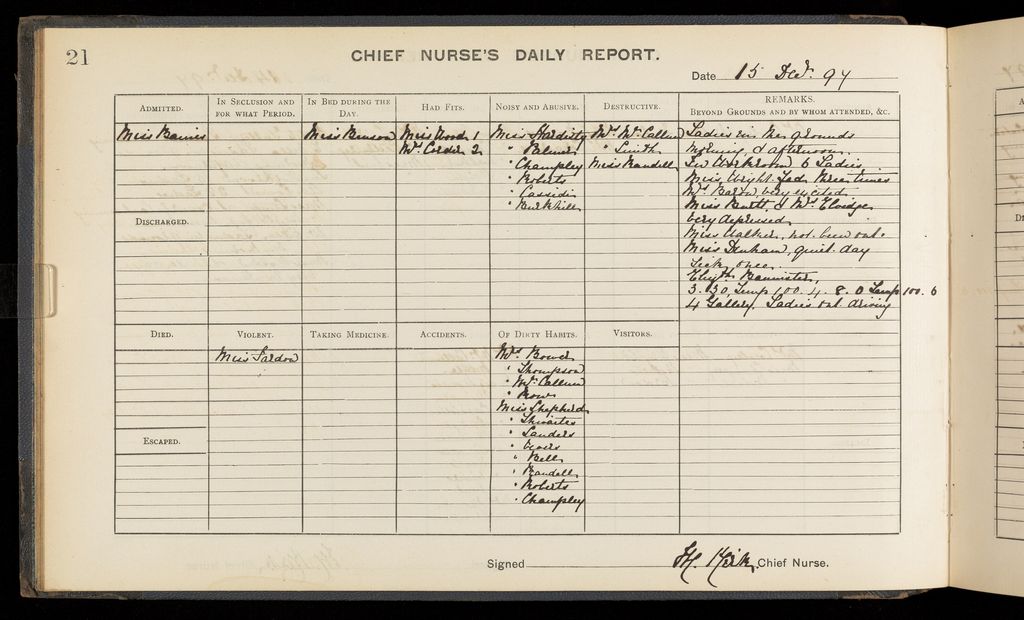 21
CHIEF NURSE'S DAILY REPORT.
Date 15 Dec. 97
ADMITTED.
Miss
DISCHARGED.
DIED.
ESCAPED.
IN SECLUSION AND
FOR WHAT PERIOD.
VIOLENT.
Miss
IN BED DURING THE
DAY.
Miss Benson
TAKING MEDICINE.
HAD FITS.
Miss Wood 1
Mrs. Corder 2
ACCIDENTS.
NOISY AND ABUSIVE.
Miss Hardisty
" Palmer
" Champley
" Roberts
" Cassidi
" Burkhill
OF DIRTY HABITS.
Mrs. Bower
" Thompson
" McCallum
" Row
Miss Shepherd
" Thwaites
" Sanders
"
" Bell
" Randell
" Roberts
" Champley
DESTRUCTIVE.
Mrs. McCallum
" Smith
Miss Randell
VISITORS.
REMARKS.
BEYOND GROUNDS AND BY WHOM ATTENDED, &C.
Ladies in the grounds
Morning & afternoon.
In Workroom 6 Ladies
Miss Wright fed three times
Mrs. Baron very excited
Miss Burtt & Mrs. Elvidge
very depressed
Miss Walker, not been out.
Miss Denham, quiet day
Sick once.
Elizth. Bannister,
3.30 Temp 100.4. 8.0 Temp 100.6
4 Gallery. Ladies out driving
Signed H. Kirk, Chief Nurse.